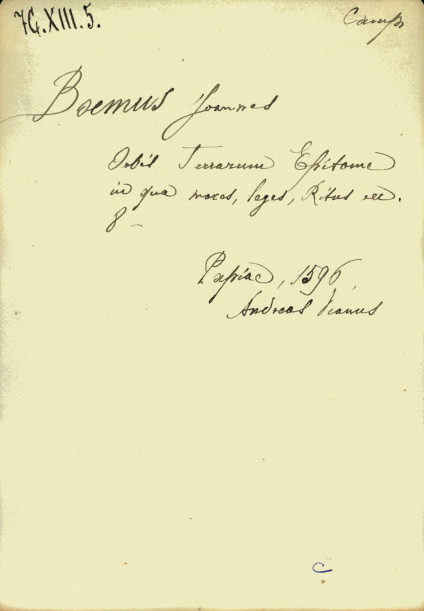 74.XIII.5.
Camp
Boemus Joannes
Orbis Terrarum Epitome
in qua mores, leges, Ritus etc.
8-
Papiae, 1596,
Andreas Vianus
C